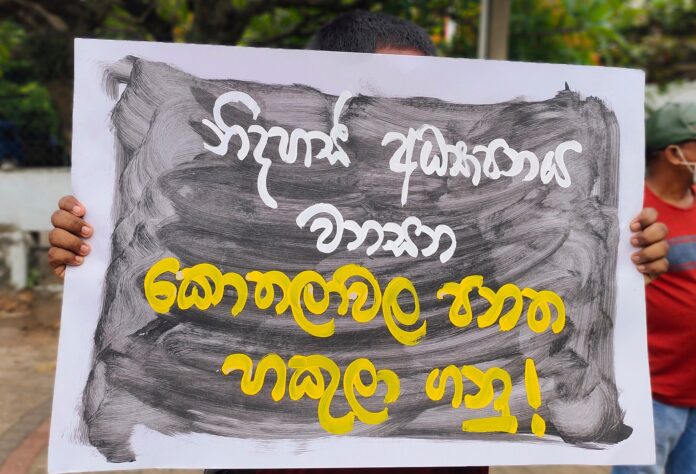 නිදහස් අධ්‍යාපනය
වනසන
කොතලාවල පනත
හකුලා ගනු!